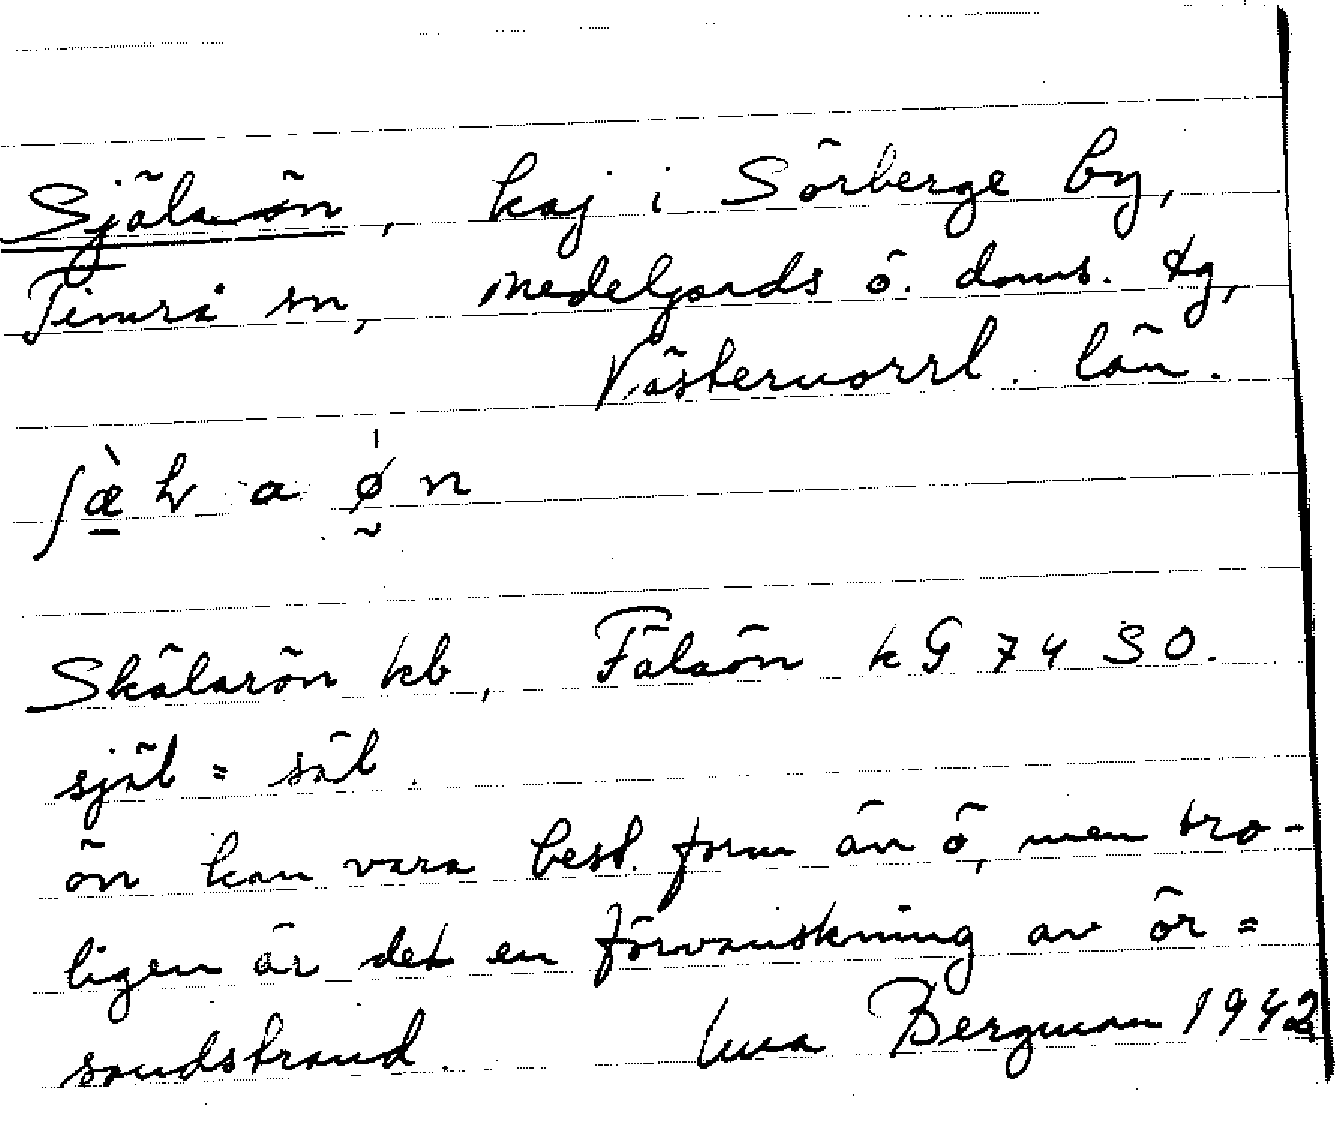 Själaön, kaj i Sörberge by,
Timrå sn, Medelpads ö. doms. tg,
Västernorrl. län.
ʃæ̀l a øn
Skälarön kb, Fälaön kG 74 SO.
själ = säl.
ön kan vara best. form än ö, men tro-
ligen är det en förvanskning av ör =
sandstrand. Bergman 1942